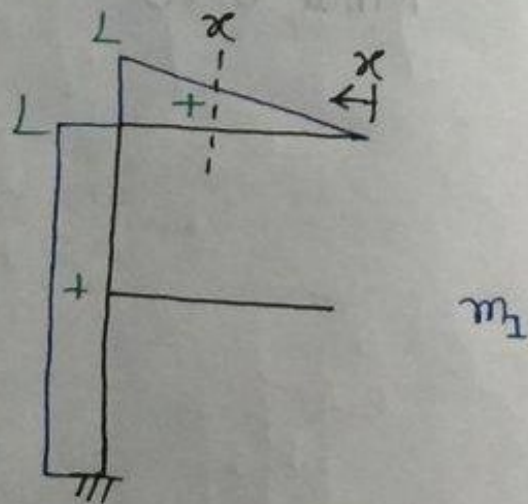 L
x
x
+
L
+
m₁